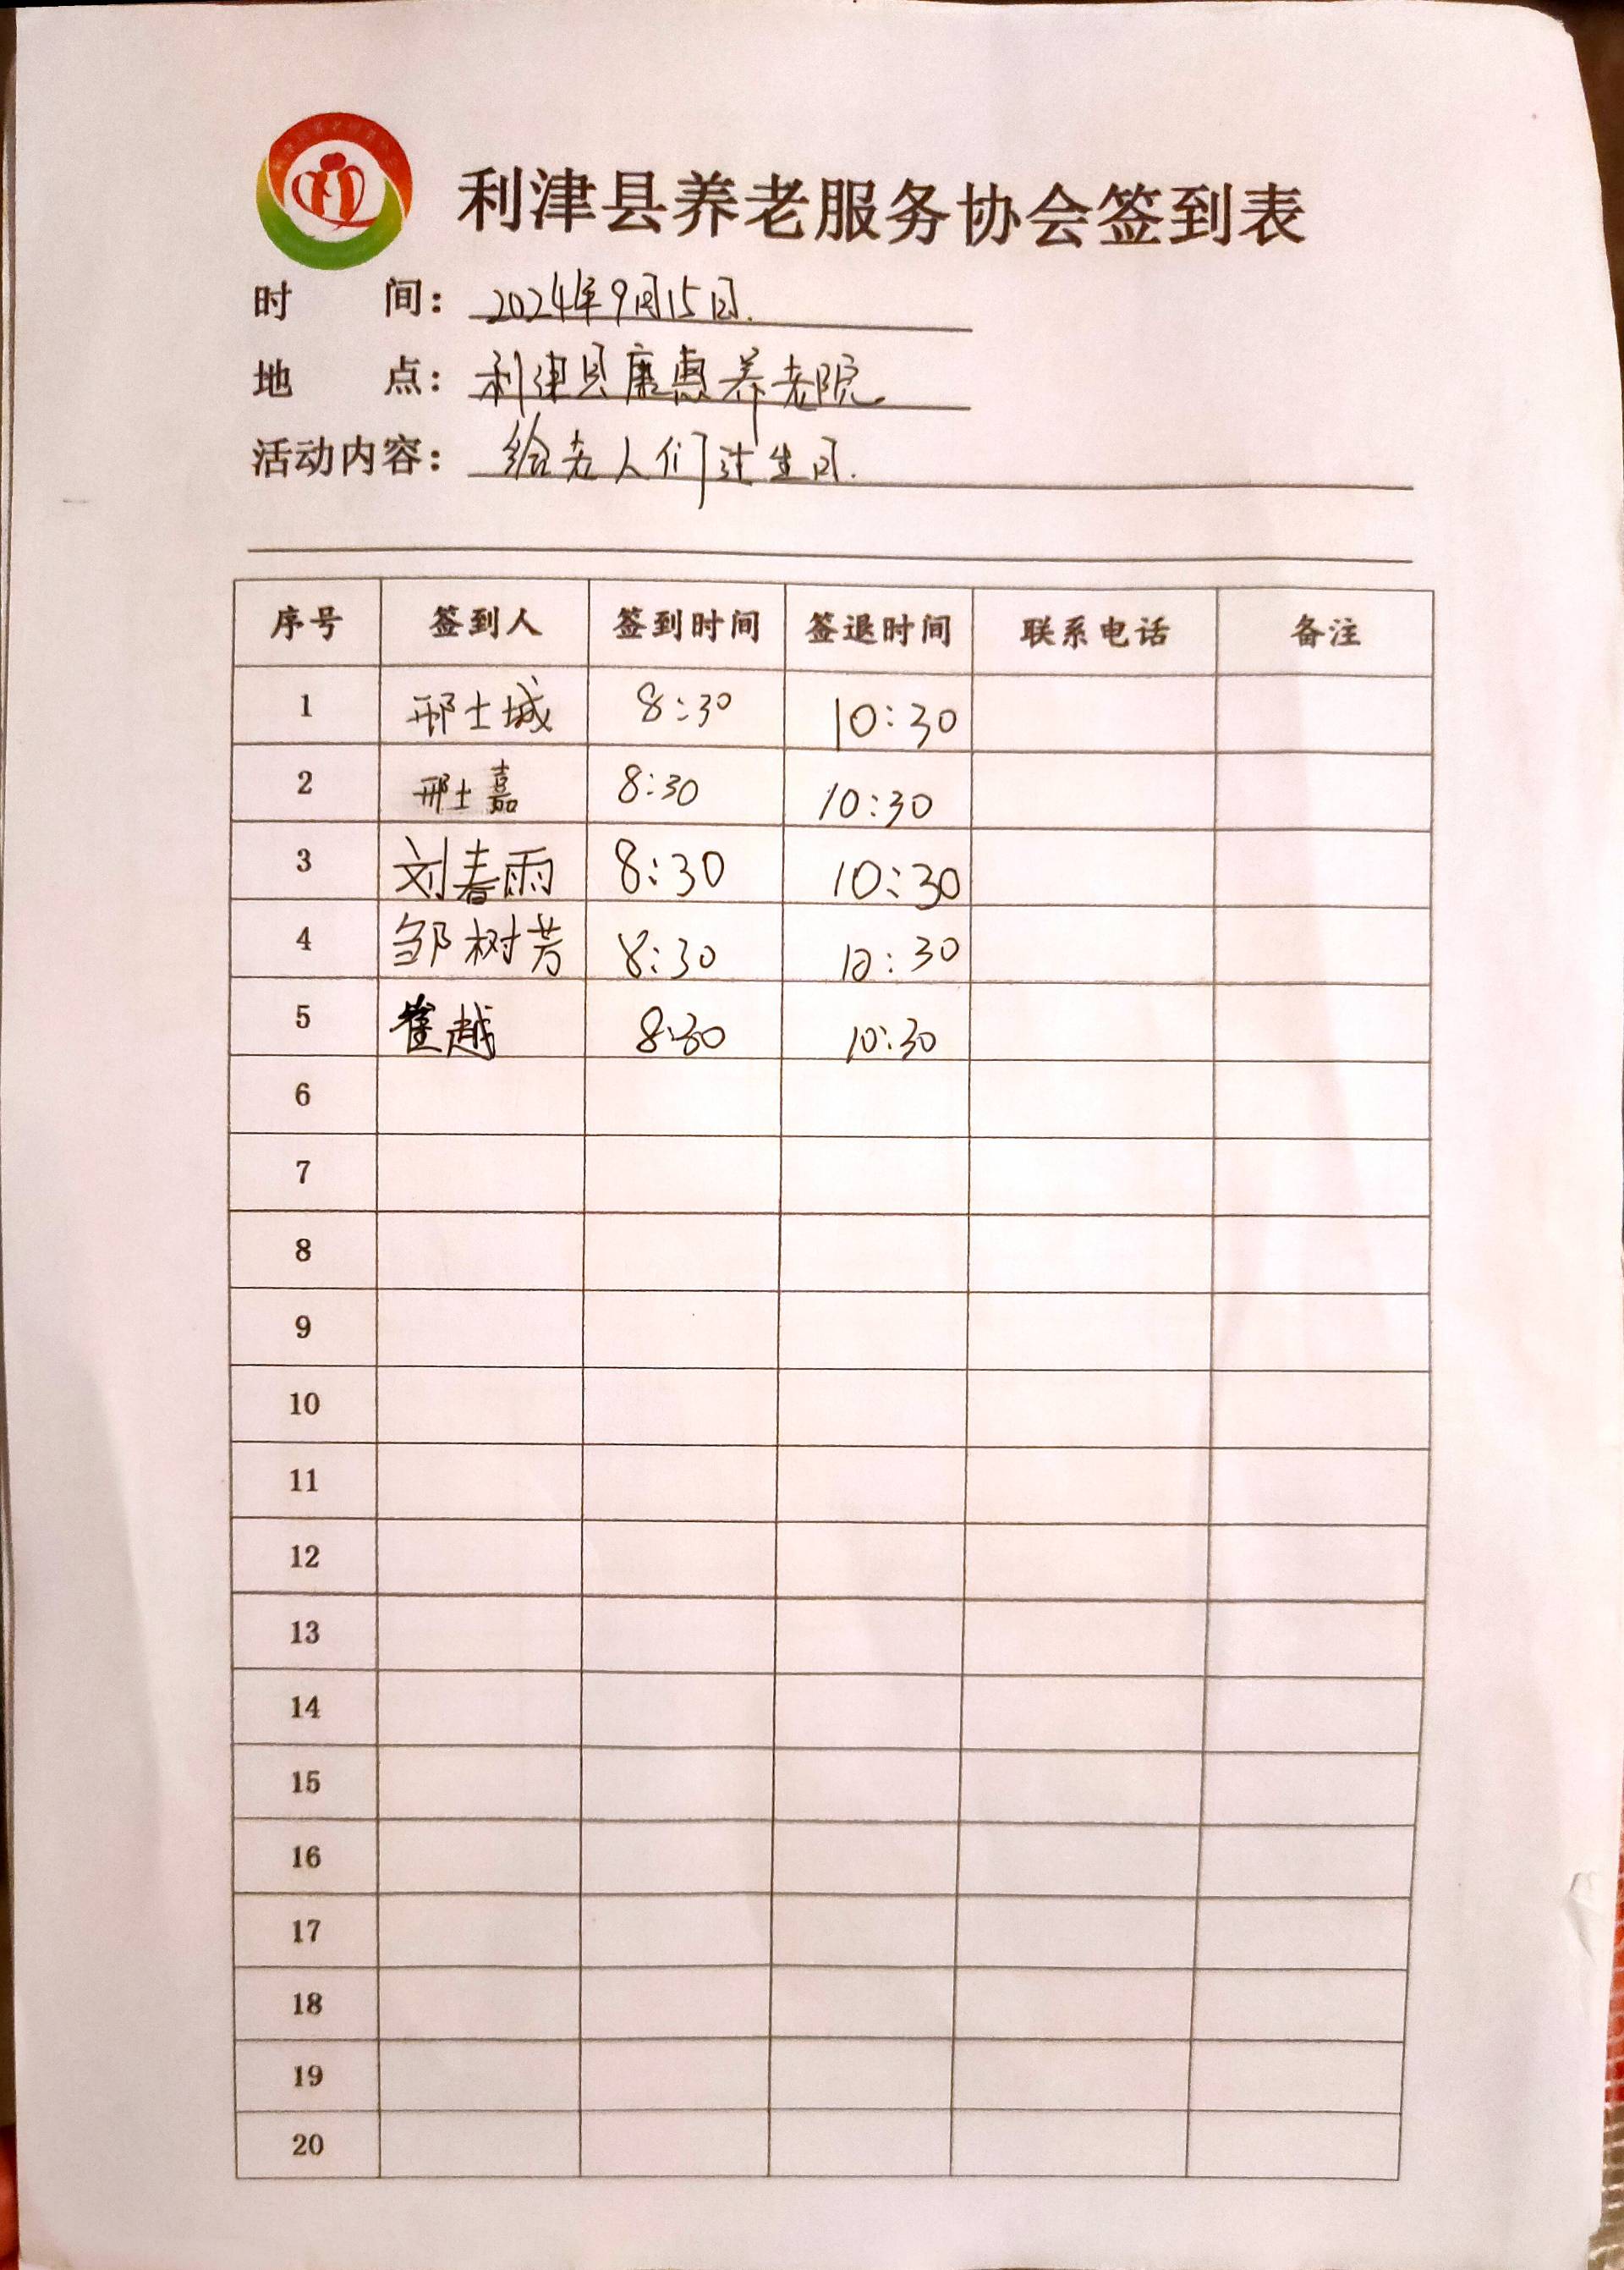 利津县养老服务协会签到表
时 间： 2024年9月15日.
地 点： 利津县康惠养老院
活动内容： 给老人们过生日.
序号 签到人 签到时间 签退时间 联系电话 备注
1 邢士城 8:30 10:30
2 邢士嘉 8:30 10:30
3 刘春雨 8:30 10:30
4 邹树芳 8:30 10:30
5 崔越 8:30 10:30
6
7
8
9
10
11
12
13
14
15
16
17
18
19
20